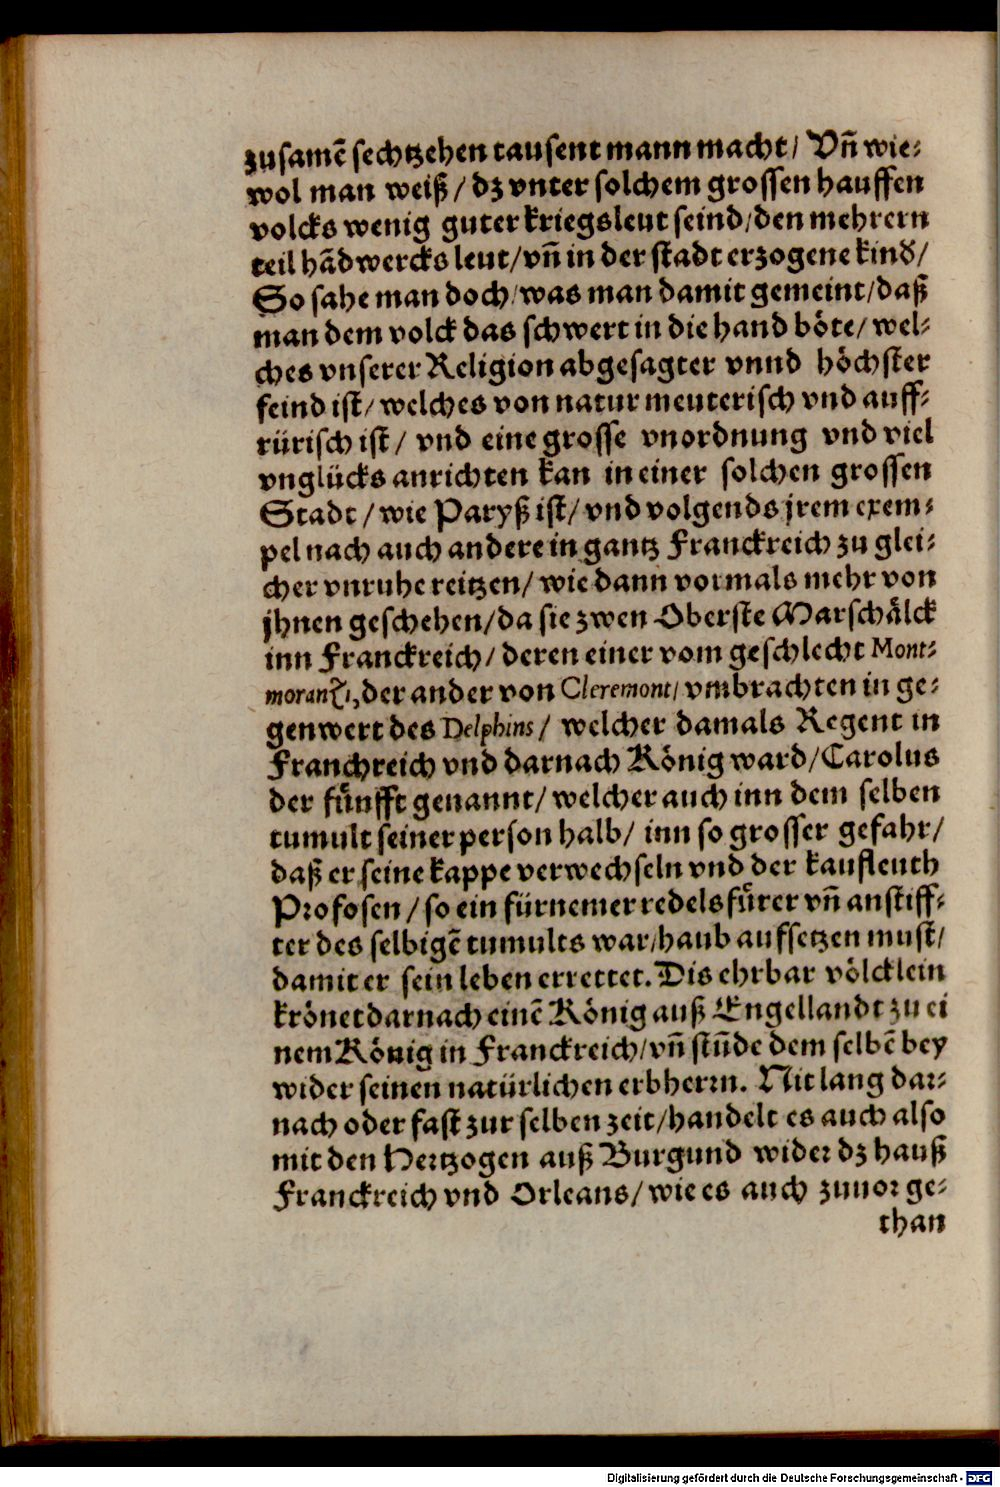 zusamẽ sechtzehen tausent mann macht/ Vñ wie-
wol man weiß/ dz vnter solchem grossen hauffen
volcks wenig guter kriegsleut seind/ den mehrern
teil hãdwercks leut/ vñ in der stadt erzogene kind/
So sahe man doch/ was man damit gemeint/ daß
man dem volck das schwert in die hand böte/ wel-
ches vnserer Religion abgesagter vnnd höchster
feind ist/ welches von natur meuterisch vnd auff-
rürisch ist/ vnd eine grosse vnordnung vnd viel
vnglücks anrichten kan in einer solchen grossen
Stadt/ wie Paryß ist/ vnd volgends jrem exem-
pel nach auch andere in gantz Franckreich zu glei-
cher vnruhe reitzen/ wie dann vormals mehr von
jhnen geschehen/ da sie zwen Oberste Marschälck
inn Franckreich/ deren einer vom geschlecht Mont-
morantzi, der ander von Cleremont/ vmbrachten in ge-
genwert des Delphins/ welcher damals Regent in
Franchreich vnd darnach König ward/ Carolus
der fünfft genannt/ welcher auch inn dem selben
tumult seiner person halb/ inn so grosser gefahr/
daß er seine kappe verwechseln vnd der kaufleuth
Profosen/ so ein fürnemer redelsfürer vñ anstiff-
ter des selbigẽ tumults war/ haub aufsetzen must/
damit er sein leben errettet. Dis ehrbar völcklein
krönet darnach einẽ König auß Engellandt zu ei
nem König in Franckreich/ vñ stũde dem selbẽ bey
wider seinen natürlichen erbherrn. Nit lang dar-
nach oder fast zur selben zeit/ handelt es auch also
mit den Hertzogen auß Burgund wider dz hauß
Franckreich vnd Orleans/ wie es auch zuuor ge-
than
Digitalisierung gefördert durch die Deutsche Forschungsgemeinschaft - DFG